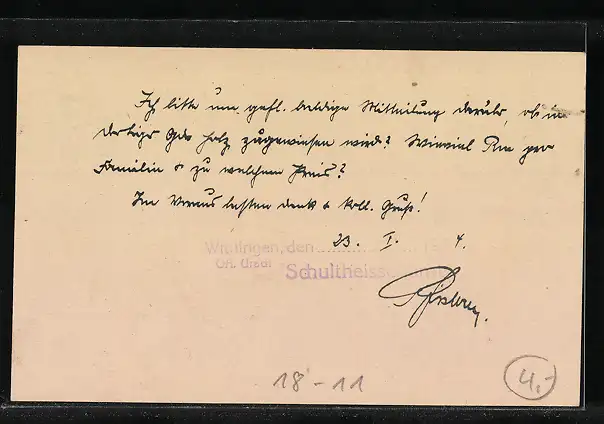 Ich bitte um gefl. baldige Mitteilung darüber, ob in
dortiger Gde Holz zugewiesen wird? Wieviel Rm per
Familie & zu welchem Preis?
Im Voraus besten Dank & koll. Gruß!
Wittlingen, den 23. I. 4.
OA. Urach Schultheiss
18-11
4,-